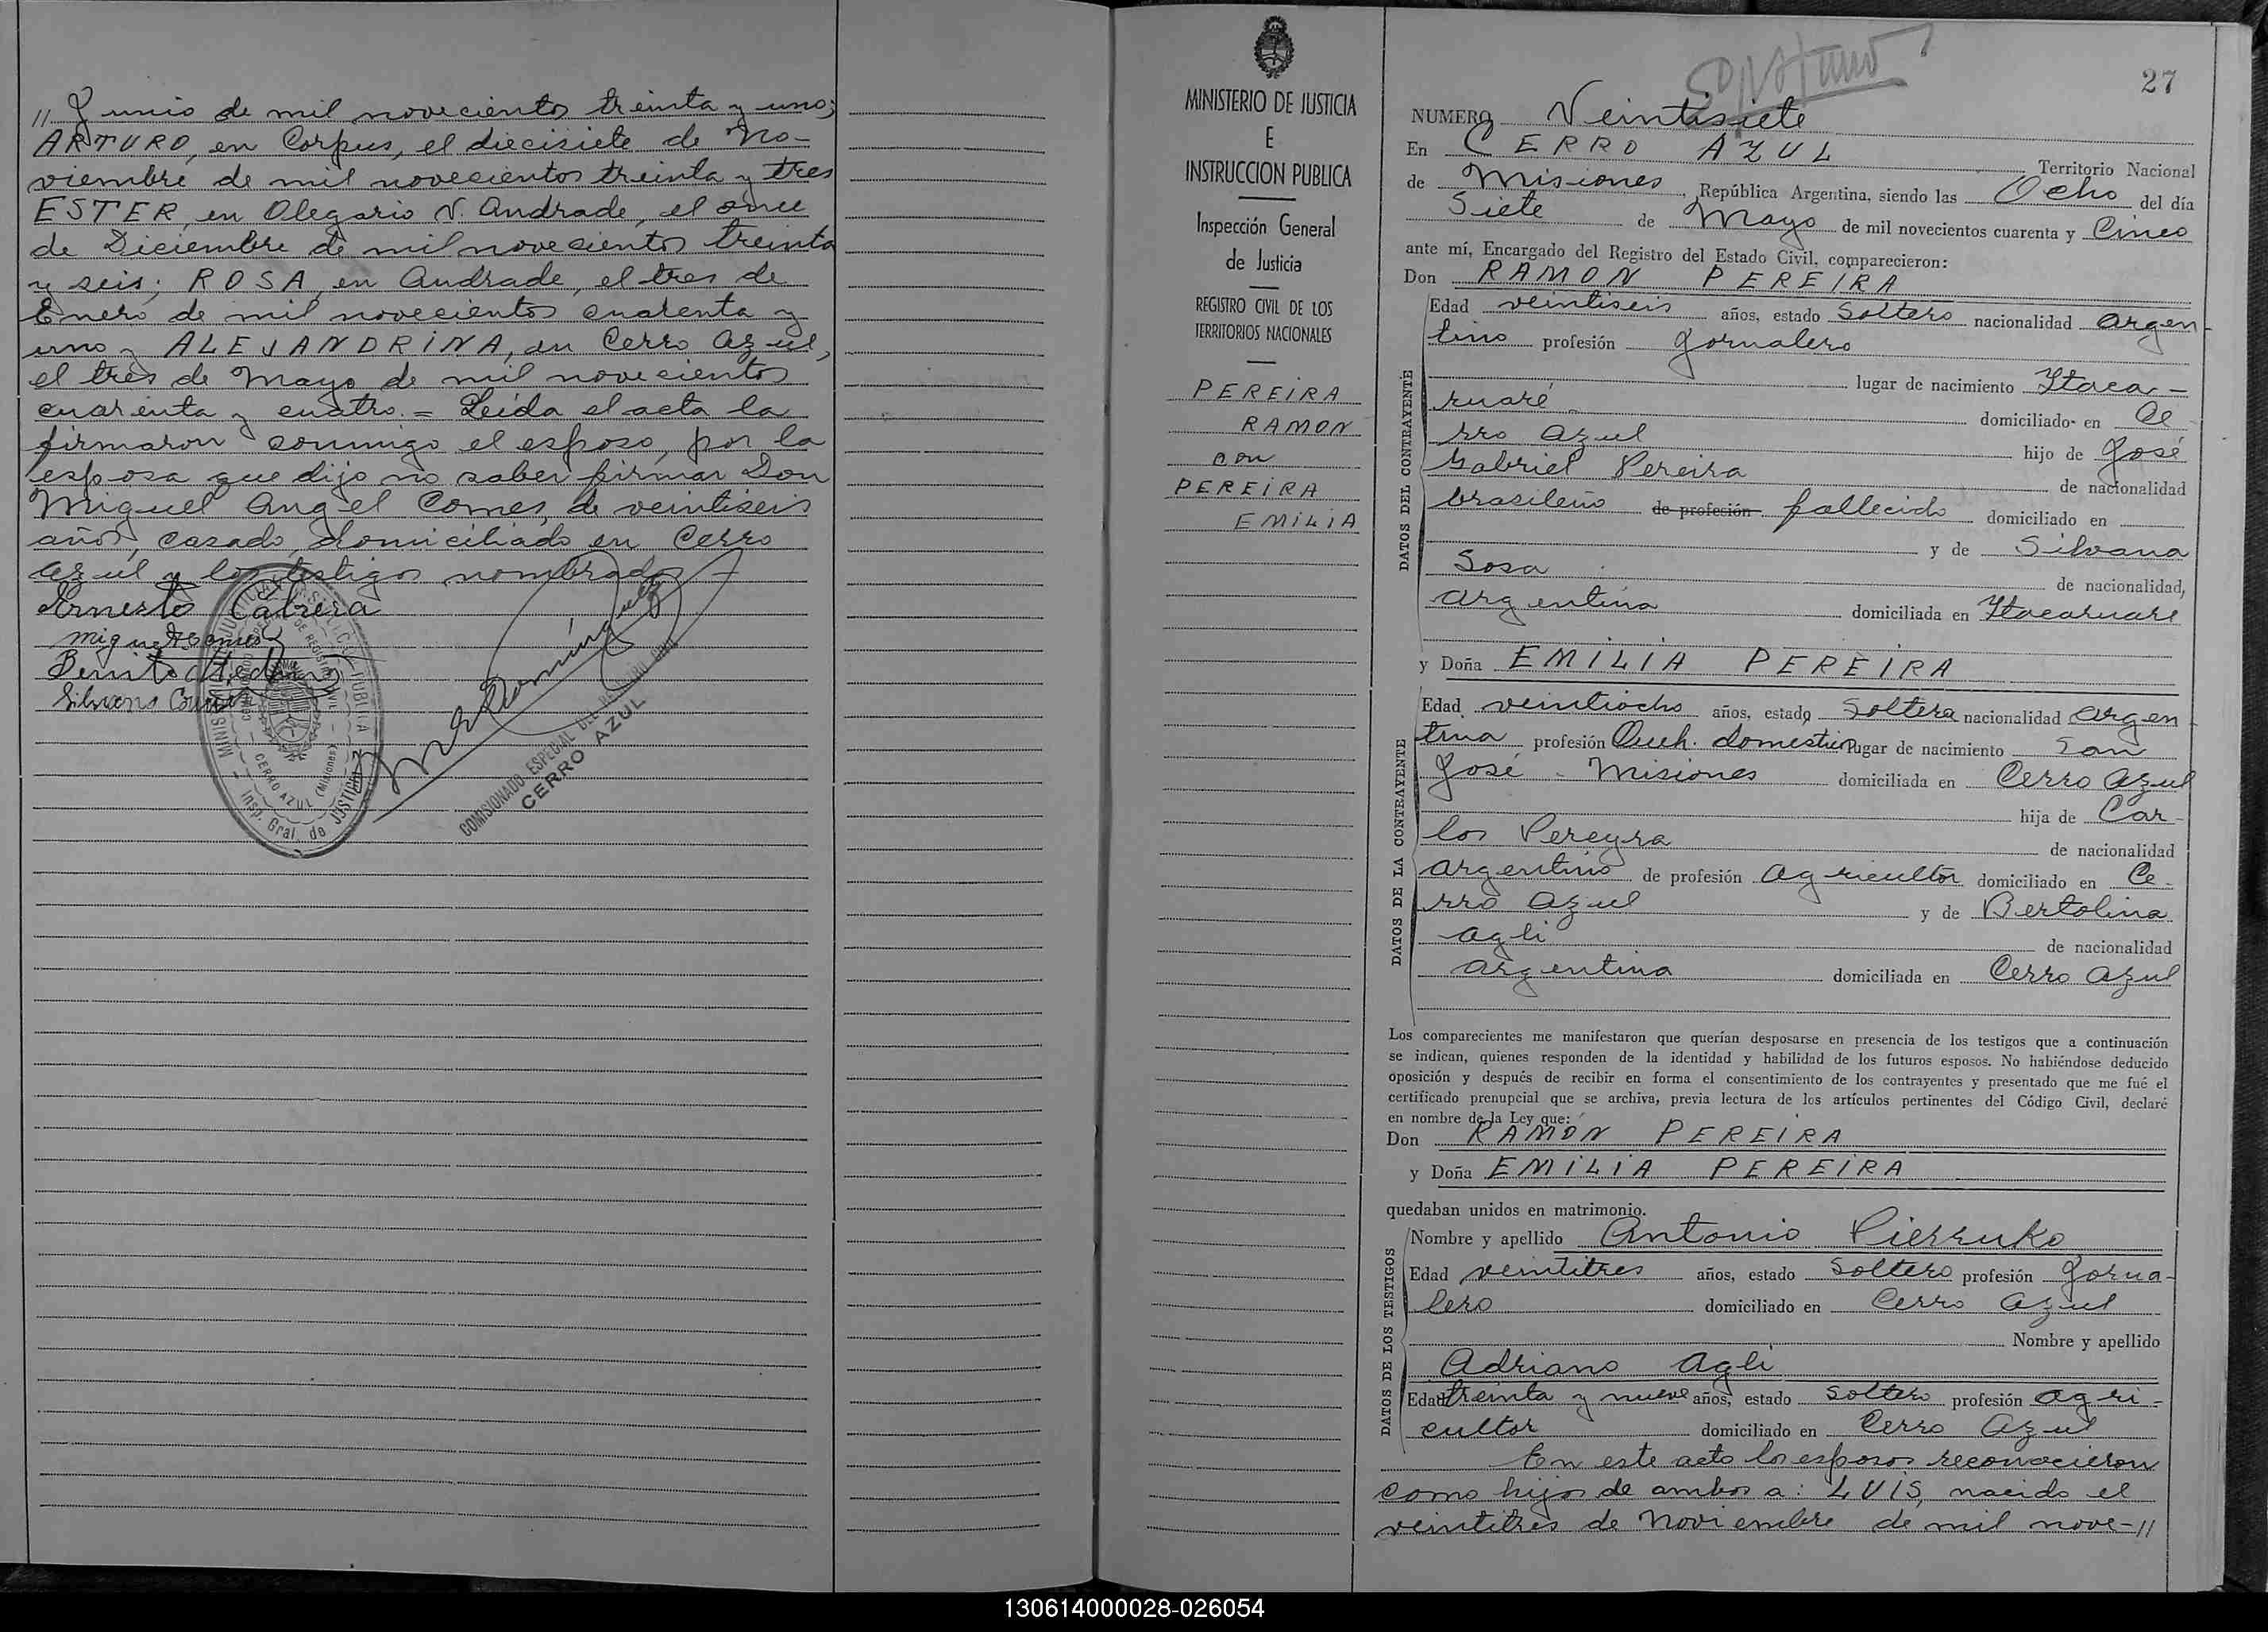 // Junio de mil novecientos treinta y uno;
ARTURO, en Corpus, el diecisiete de No-
viembre de mil novecientos treinta y tres
ESTER, en Olegario V. Andrade, el once
de Diciembre de mil novecientos treinta
y seis; ROSA, en Andrade, el tres de
Enero de mil novecientos cuarenta y
uno y ALEJANDRINA, en Cerro Azul,
el tres de Mayo de mil novecientos
cuarenta y cuatro.= Leída el acta la
firmaron conmigo el esposo, por la
esposa que dijo no saber firmar Don
Miguel Angel Comes, de veintiseis
años, casado, domiciliado en Cerro
Azul y los testigos nombrados
Ernesto Cabrera
Benito
COMISIONADO ESPECIAL DEL REGISTRO CIVIL
CERRO AZUL
CERRO AZUL (Misiones)
Insp. Gral. de JUSTICIA
MINISTERIO DE JUSTICIA
E
INSTRUCCION PUBLICA
Inspección General
de Justicia
REGISTRO CIVIL DE LOS
TERRITORIOS NACIONALES
PEREIRA
RAMON
con
PEREIRA
EMILIA
27
NUMERO Veintisiete
En CERRO AZUL Territorio Nacional
de Misiones, República Argentina, siendo las Ocho del día
Siete de Mayo de mil novecientos cuarenta y Cinco
ante mí, Encargado del Registro del Estado Civil, comparecieron:
Don RAMON PEREIRA
DATOS DEL CONTRAYENTE
Edad veintiseis años, estado Soltero nacionalidad Argen-
tino profesión Jornalero
lugar de nacimiento Itaca-
ruaré domiciliado en Ce
rro Azul hijo de José
Gabriel Pereira de nacionalidad
brasileño de profesión fallecido domiciliado en
y de Silvana
Sosa de nacionalidad,
argentina domiciliada en Itacaruare
y Doña EMILIA PEREIRA
DATOS DE LA CONTRAYENTE
Edad veintiocho años, estado Soltera nacionalidad Argen-
tina profesión Queh. domestic lugar de nacimiento San
José - Misiones domiciliada en Cerro Azul
hija de Car-
los Pereyra de nacionalidad
argentino de profesión Agricultor domiciliado en Ce-
rro Azul y de Bertolina
Agli de nacionalidad
argentina domiciliada en Cerro Azul
Los comparecientes me manifestaron que querían desposarse en presencia de los testigos que a continuación
se indican, quienes responden de la identidad y habilidad de los futuros esposos. No habiéndose deducido
oposición y después de recibir en forma el consentimiento de los contrayentes y presentado que me fué el
certificado prenupcial que se archiva, previa lectura de los artículos pertinentes del Código Civil, declaré
en nombre de la Ley que:
Don RAMON PEREIRA
y Doña EMILIA PEREIRA
quedaban unidos en matrimonio.
DATOS DE LOS TESTIGOS
Nombre y apellido Antonio Pierzuko
Edad veintitres años, estado Soltero profesión Jorna-
lero domiciliado en Cerro Azul
Nombre y apellido
Adriano Agli
Edad treinta y nueve años, estado soltero profesión agri-
cultor domiciliado en Cerro Azul
En este acto los esposos reconocieron
como hijos de ambos a: LUIS, nacido el
veintitres de Noviembre de mil nove-//
130614000028-026054